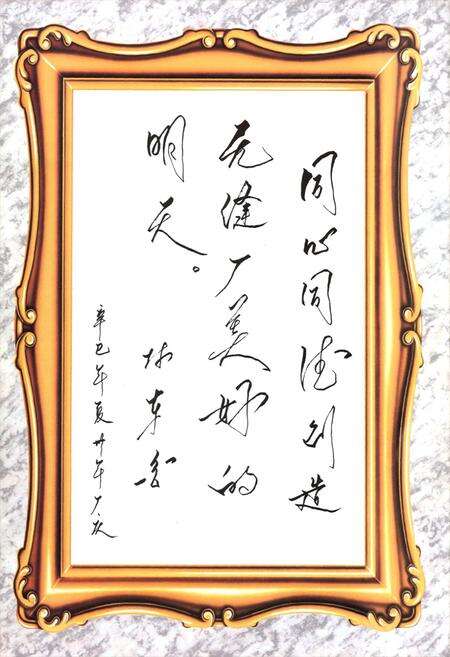 同心同德创造
无缝厂美好的
明天。
林东
辛巳年夏廿年厂庆